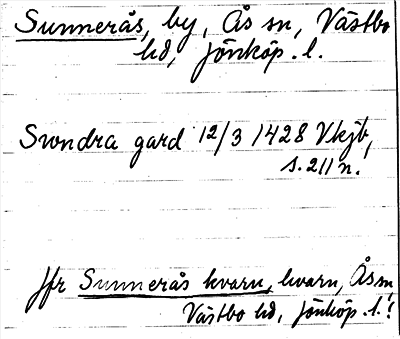 Sunnerås, by, Ås sn, Västbo
hd, Jönköp. l.
Swndra gard 12/3 1428 Vkjb,
s. 211 n.
Jfr Sunnerås kvarn, kvarn, Ås sn,
Västbo hd, Jönköp. l.!